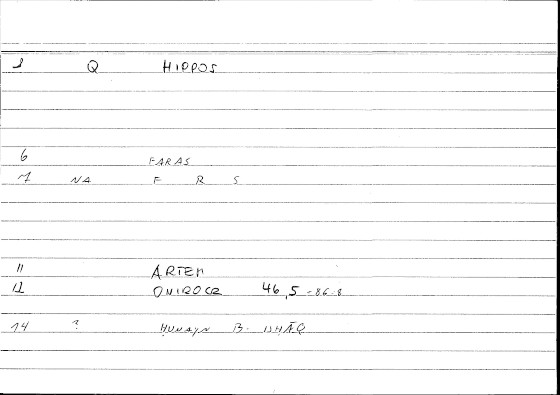 1 Q HIPPOS
6 FARAS
7 NA F R S
11 ARTEM
12 ONIROCR 46,5 -86.8
14 ? ḤUNAYN B. ISḤĀQ